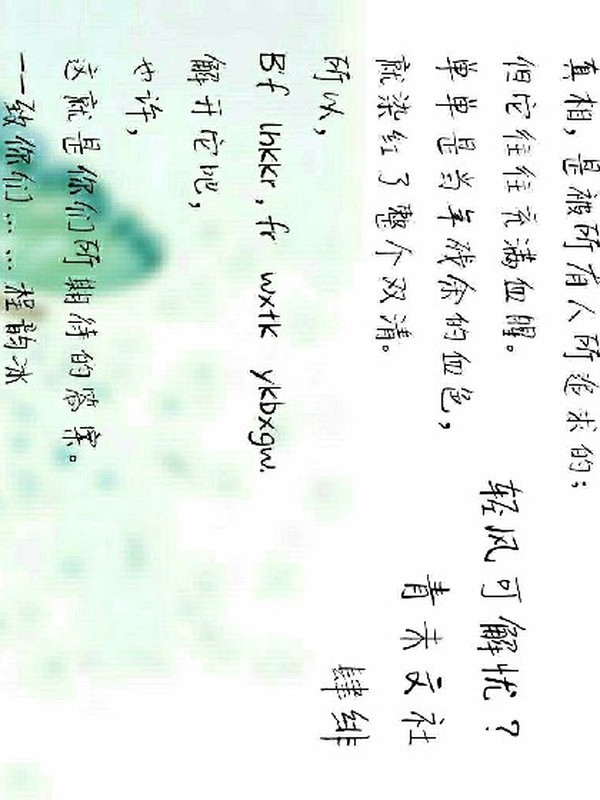 真相,是被所有人所追求的;
但它往往充满血腥。
单单是当年残余的血色,
就染红了整个双清。
所以,
B'f lhkkr, fr wxtk ykbxgw.
解开它吧,
也许,
这就是你们所期待的答案。
——致你们……程韵冰
轻风可解忧?
青未文社
肆绯